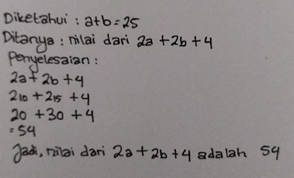 Diketahui : a+b=25
Ditanya : nilai dari 2a+2b+4
Penyelesaian :
2a+2b+4
210+215+4
20+30+4
=54
Jadi, nilai dari 2a+2b+4 adalah 54